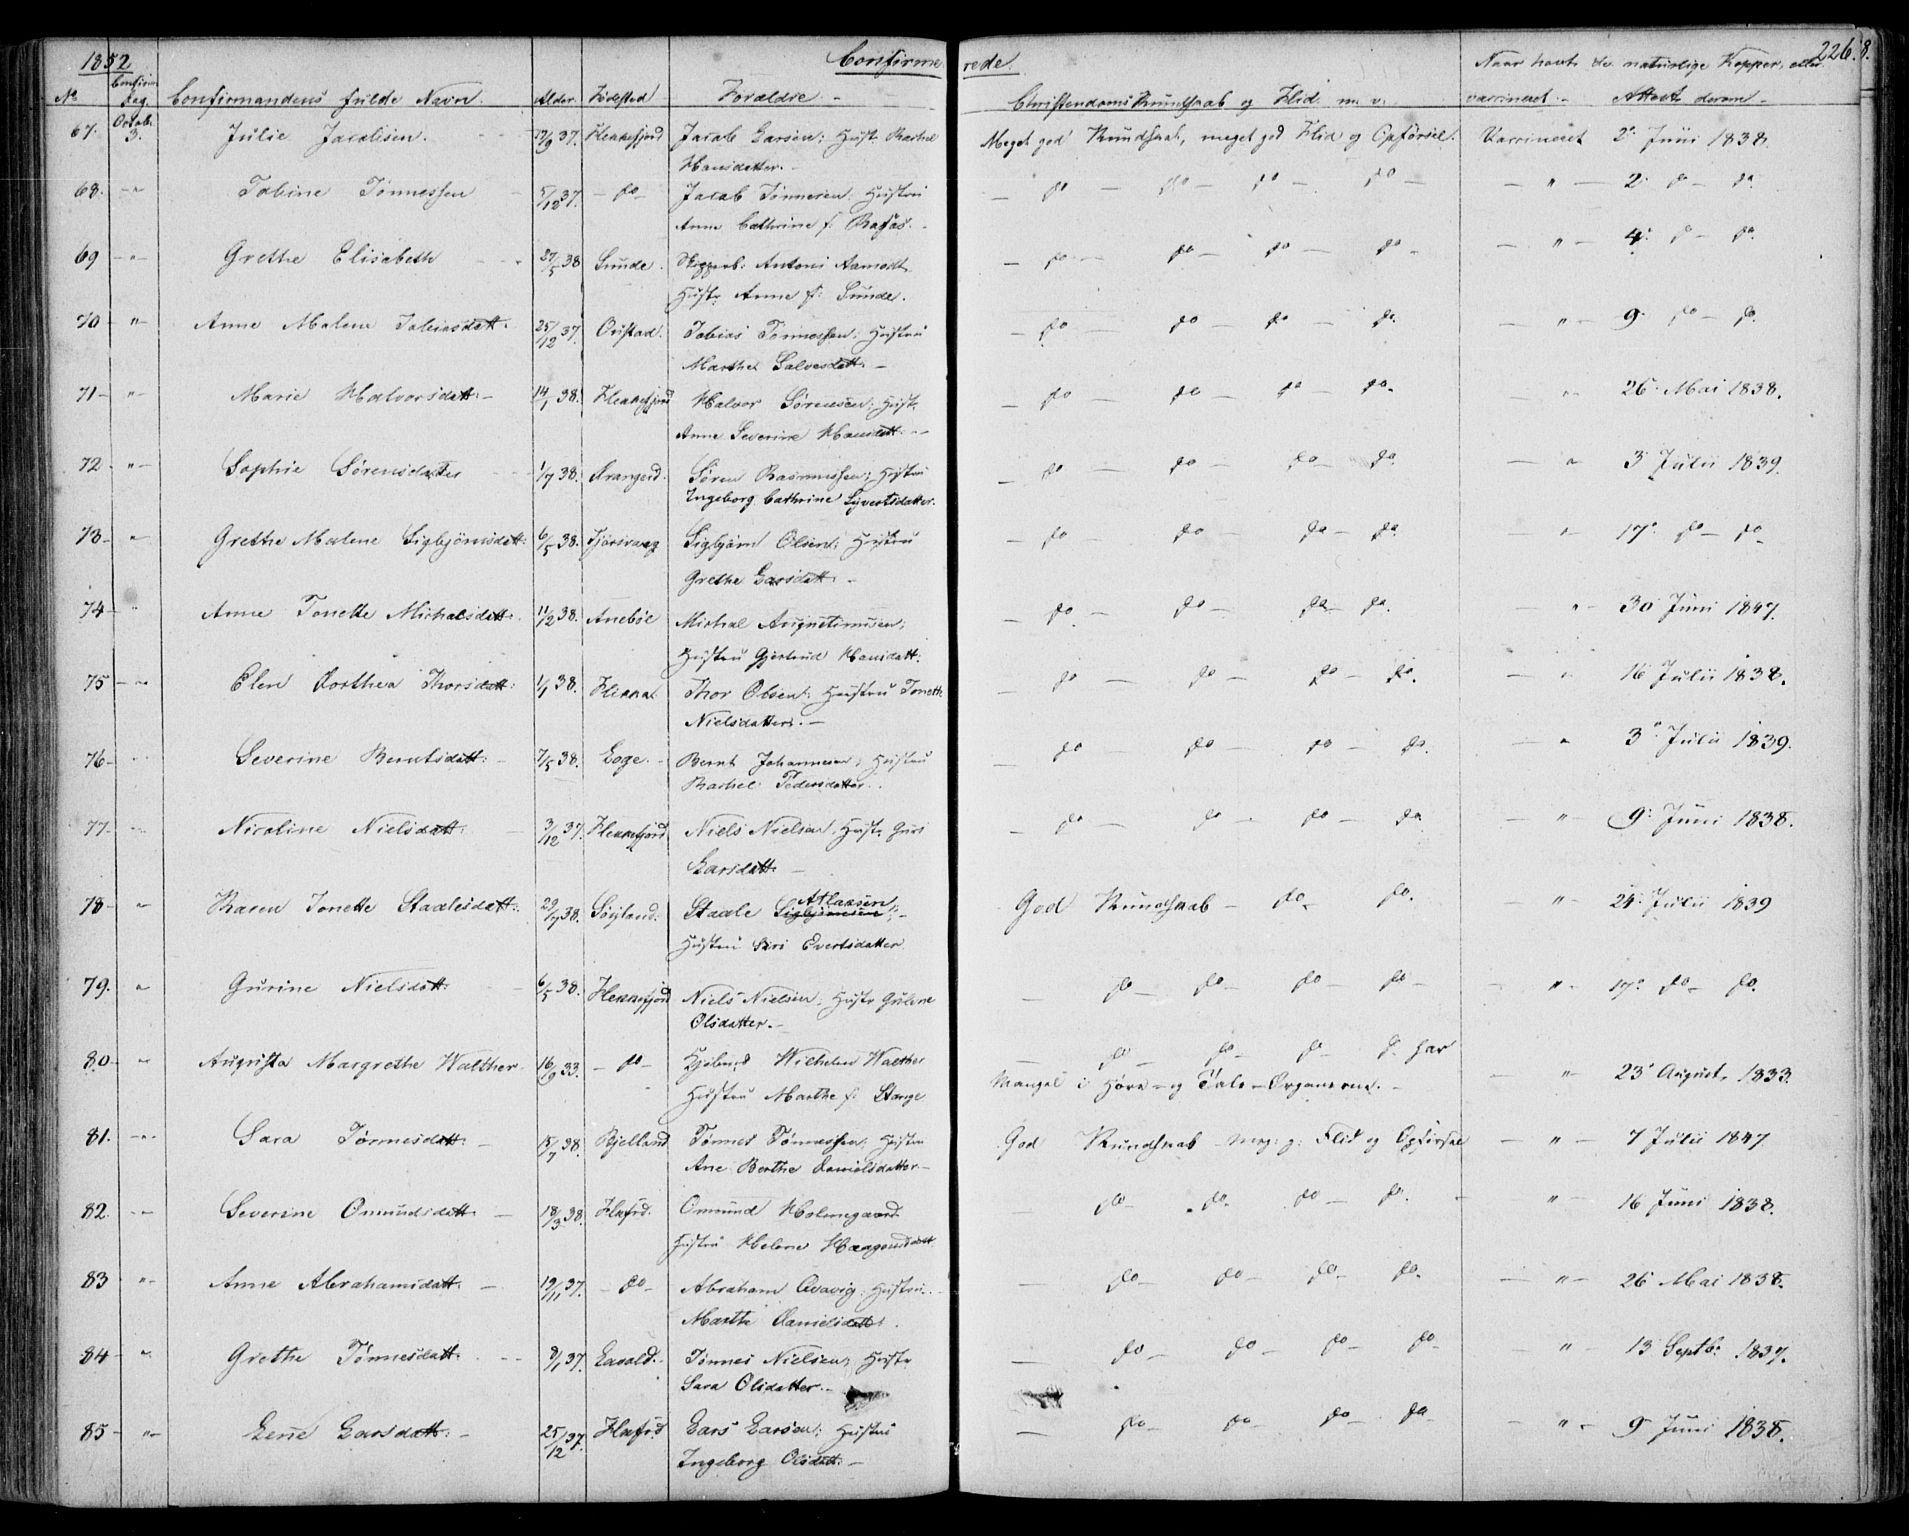 1852 Confirmerede. 226.
No Confirm. Dag. Confirmandens fulde Navn. Alder. Fødested Forældre - Christendoms Kundskab og Flid m. v. Naar havt de naturlige Kopper, eller vaccineret - Attest derom -
67. Octob. 3. Julie Jacobsen. 37. Flekkefjord Jacob Larsen; Hustr. Rachel Meget god Kundskab, meget god Flid og Opførsel. Vaccineret 2. Juni 1838.
Hansdatter. -
68. -"- Tobine Tønnessen 5/12 37. - do - Jacob Tønnesen; Hustru - do - do - do - do - - " - 2. do - do.
Anne Cathrine f.
69 -"- Grethe Elisabeth 27/5 38 Sunde. Skipperb: Antoni Aamodt, - do - do - do - do - - " - 4. do - do.
Hustr Anne f: Sunde.
70 -"- Anne Malene Tobiasdatt. 25/12 37. Tobias Tønnessen; Hustru - do do - do - do. - " - 9. do - do.
Marthe Salvesdatt. -
71 - -"- Marie Halvorsdatt. - 14/1 38. Flekkefjord Halvor Sørensen; Hustr. - do - do - do - do. " - 26. Mai 1838.
Anne Severine Hansdatt. -
72 -"- Sophie Sørensdatter 1/7 38. Søren Rasmussen; Hustru - do - do - do - do. - " 3 Julii 1839.
Ingeborg Cathrine Syvertsdatter.
73 - " Grethe Malene Sigbjørnsdatt. 6/5 38. Tjørsvaag Sigbjørn Olsen; Hustru - do - do - do - do. - " - 17. do - do -
Grethe Larsdatt. -
74 - " Anne Tonette Michalsdatt. 11/2 38. Anebøe Michal Augustinusen; do - do - do - do. - " - 30 Juni 1847.
Hustru Gjertrud Hansdatt.
75 - -"- Elen Dorthea Thorsdatt. 1/1 38. Thor Olsen; Hustru Tonette - do - do - do - do. - " - 16 Julii 1838.
Nielsdatter. -
76 - Severine Berntsdatt. 7/5 38. Loge - Bernt Johannesen; Hustru do - do - do - do. - " 3. Julii 1839.
Rachel Pedersdatter.
77. Nicoline Nielsdatt. 3/12 37. Flekkefjord Niels Nielsen, Hustr. Guri - do - do - do - do. - " - 9. Juni 1838.
Larsdatt. -
78 - " Karen Tonette Staalesdatt. 29/7 38. Søyland. Staale Sigbjørnsen Atlaksen; God Kundskab - do - do. - " - 24. Julii 1839
Hustru Siri Evertsdatter.
79. " Gurine Nielsdatt. 6/5 38. Flekkefjord Niels Nielsen; Hustr Gulene - do - do - do - do - - " - 17. do - do.
Olsdatter. -
80 - " Augusta Margrethe Walther. 16/9 33. - do - Wilhelm Walther - do - do - do - do. har
Hustru Marthe f. Stange Mangel i Høre- og Tale-Organerne. - - " - 23. August, 1833.
81. -"- Sara Tønnesdatt. - /7 38. Bjelland Tønnes Tønnessen; Hustru God Kundskab - Meg. g. Flid og Opførsel - " - 7 Julii 1847.
Ane Berthe Danielsdatter -
82. -"- Severine Omundsdatt. - 18/3 38. Omund Holmegaard - do - do - do - do. - " - 16 Juni 1838.
Hustru Helene Haagensdatt.
83 -"- Anne Abrahamsdatt. - 19/11 37. - do - Abraham Qvavig; Hustru - do - do - do - do. - " - 26 Mai 1838.
Marthe Danielsdatt.
84 - " Grethe Tønnesdatt. - 8/1 37. Lavold. Tønnes Nielsen; Hustr - do - do - do - do - " - 13 Septb. 1837.
Sara Olsdatter. -
85 - -"- Lene Larsdatt. - 25/12 37. Lars Larsen; Hustru - do - do - do - do - - " - 9. Juni 1838.
Ingeborg Olsdatt. -